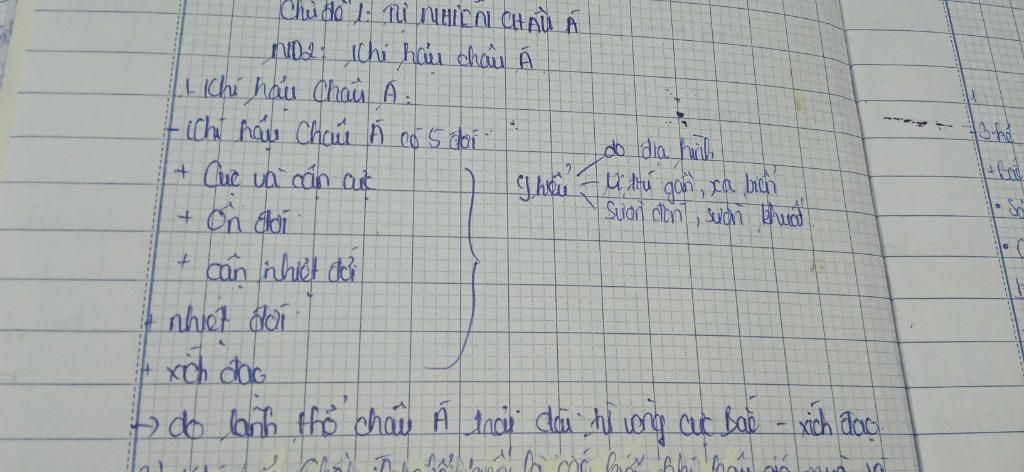 Chủ đề 1: TỰ NHIÊN CHÂU Á
ND2: Khí hậu châu Á
1. Khí hậu Châu Á:
- Khí hậu Châu Á có 5 đới
+ Cực và cận cực
+ Ôn đới
+ cận nhiệt đới
+ nhiệt đới
+ xích đạo
nhiều
do địa hình
vị trí gần, xa biển
sườn đón, sườn khuất
→ do lãnh thổ châu Á trải dài từ vòng cực Bắc - xích đạo